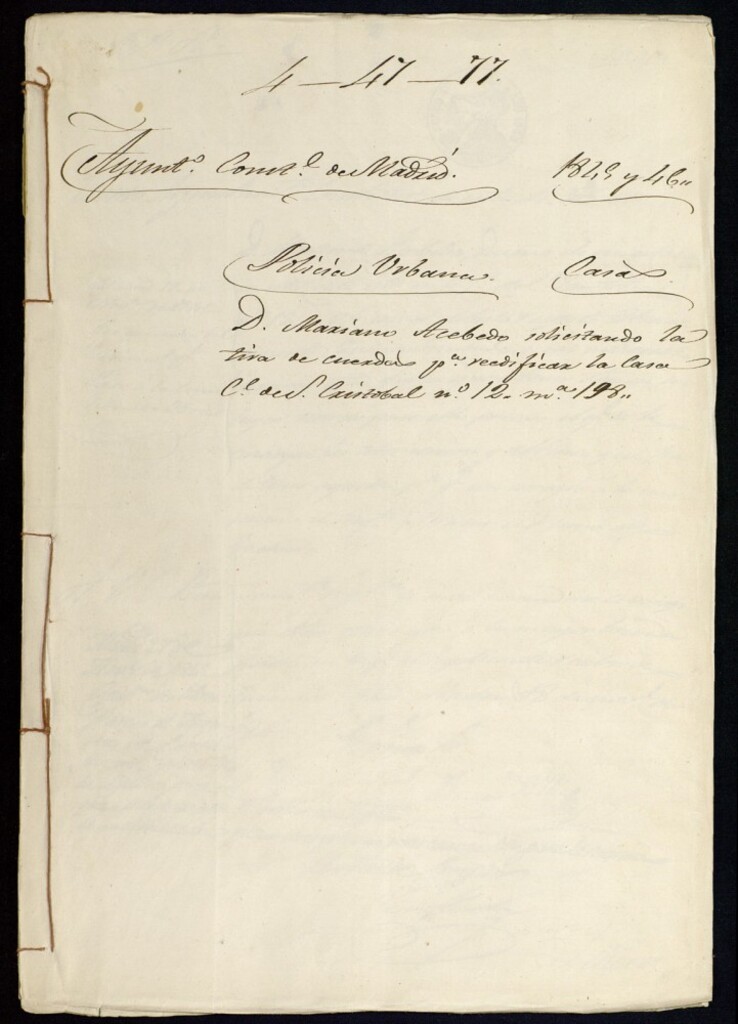 4-47-77.
Ayunt.º Const.l de Madrid. 1845 y 46..
Policia Urbana. Casas
D. Mariano Acebedo solicitando la
tira de cuerdas p.a reedificar la casa
C.l de S. Cristobal n.º 12. m.a 198..